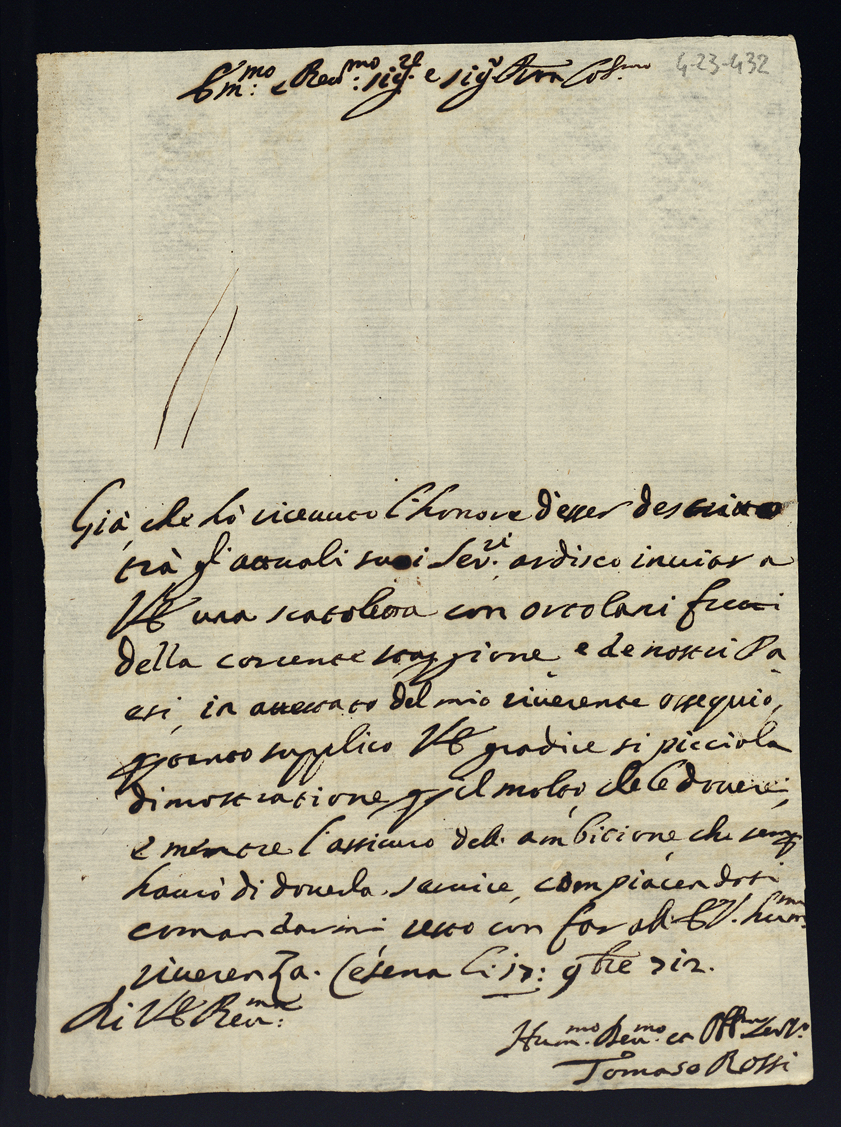 Em.mo e Rev.mo Sig.re e Sig.r P̃ron Col.mo
4-23-432
Già che hò riceuuto l'honore d'esser descritto
trà gl'attuali suoi Ser.ri ardisco inuiar a
VE una scatoletta con ortolani frutti
della corrente staggione e de nostri Pa
esi, in attestato del mio riuerente ossequio,
pertanto supplico VE gradire si picciola
dimostratione per il molto, che le dourei;
e mentre l'assicuro dell'ambitione, che semp̃
haurò di douerla seruire, compiacendosi
comandarmi resto con far all'EV. hum.ma
riuerenza. Cesena li 17: 9bre 712.
di VE Reu.ma
Hum.mo Deu.mo et Obb.mo Seru.e
Tomaso Rossi